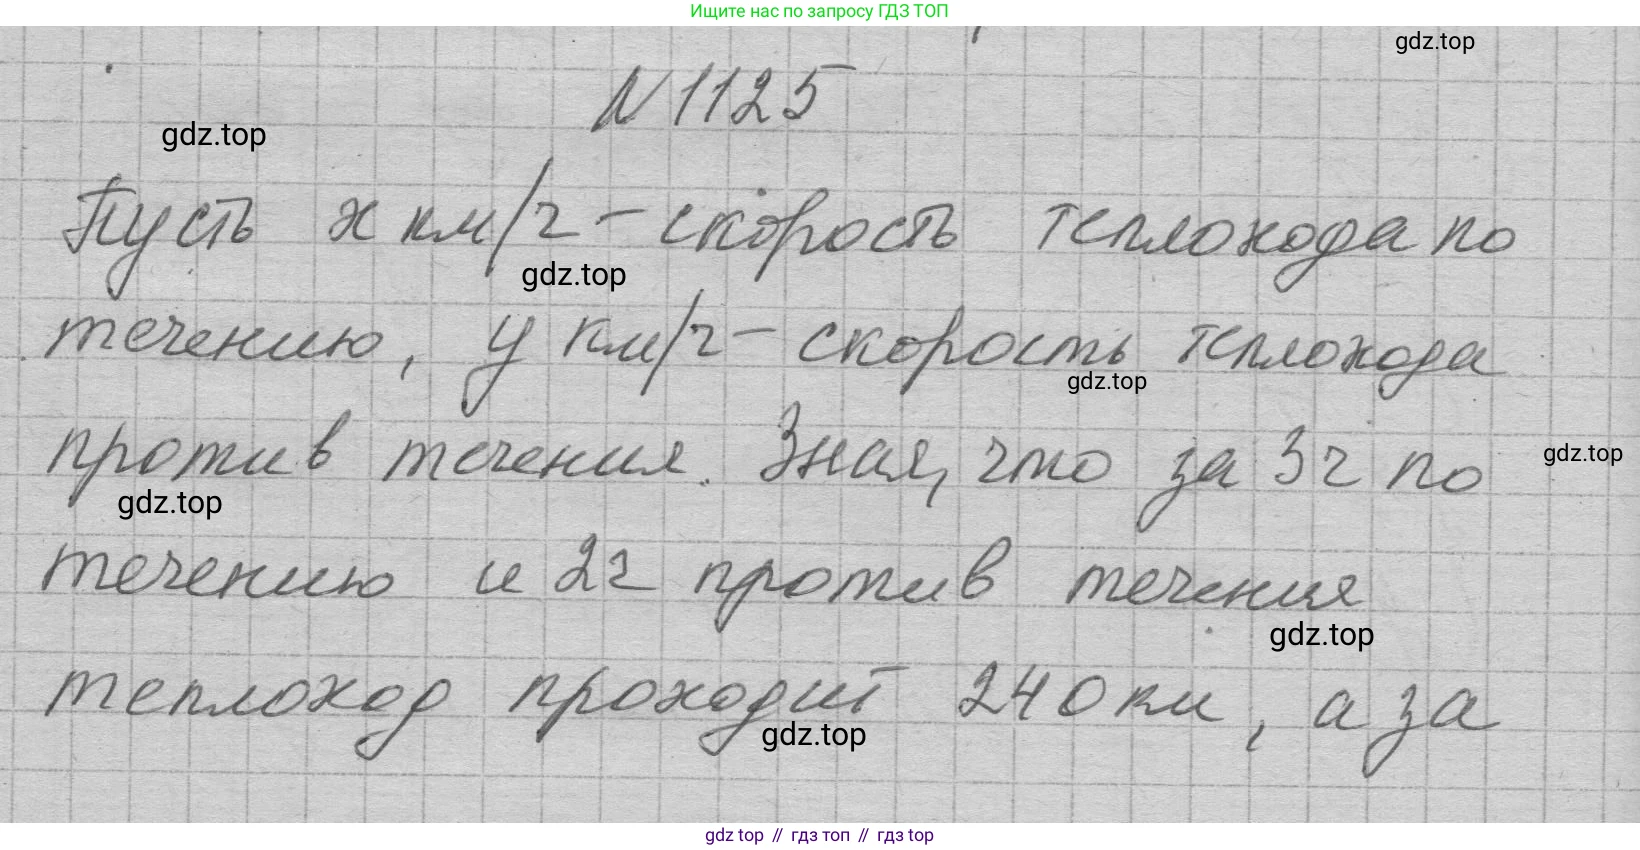 Ищите нас по запросу ГДЗ ТОП
gdz.top
N 1125
gdz.top
Пусть х км/ч - скорость теплохода по
gdz.top
течению, у км/ч - скорость теплохода
gdz.top
против течения. Зная, что за 3ч по
gdz.top
gdz.top
течению и 2ч против течения
gdz.top
теплоход проходит 240 км, а за
gdz.top
gdz top // гдз топ // гдз top